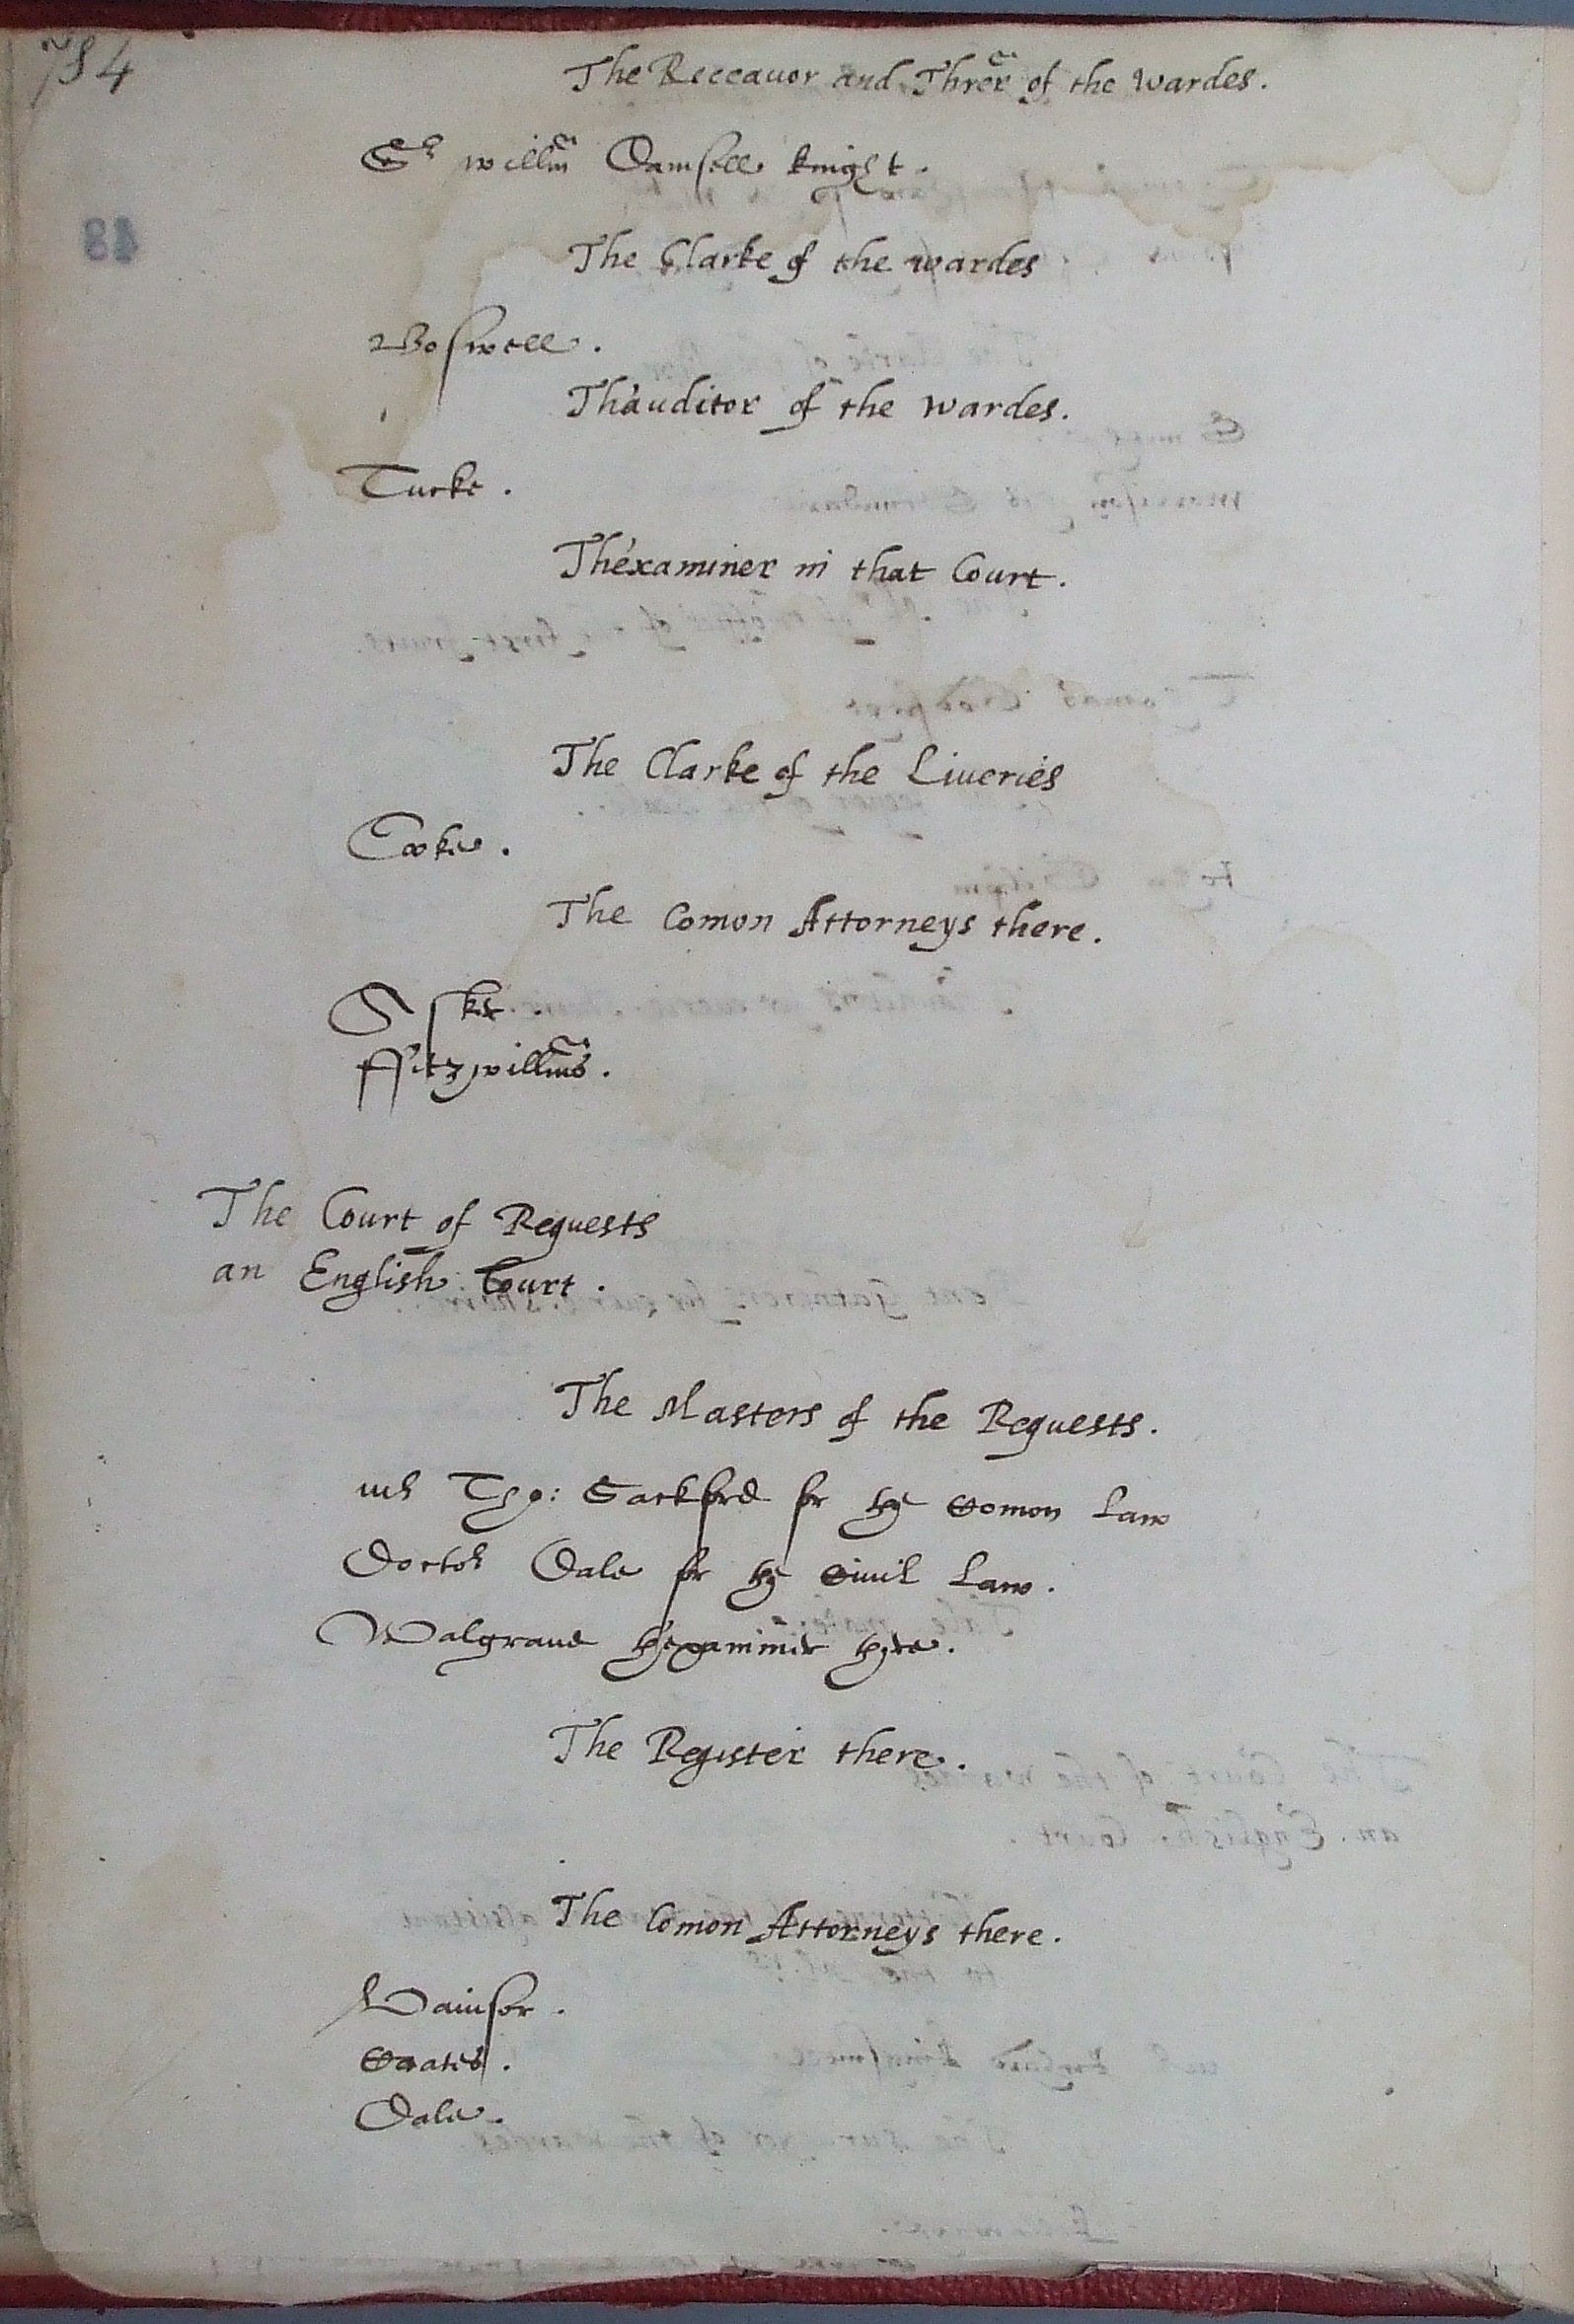 784
The Receauor and Threr of the wardes.
Sr willm Damsell knight.
The Clarke of the wardes
Boswell.
Th'auditor of the wardes.
Tucke.
Th'examiner in that Court.
The Clarke of the Liueries
Cooke.
The Comon Attorneys there.
ffitzwillms.
The Court of Requests
an English Court.
The Masters of the Requests.
mr Tho: Sackford for the Comon Law
Doctor Dale for the Civil Law.
Walgraue th'examiner there.
The Register there.
The Comon Attorneys there.
Dale.